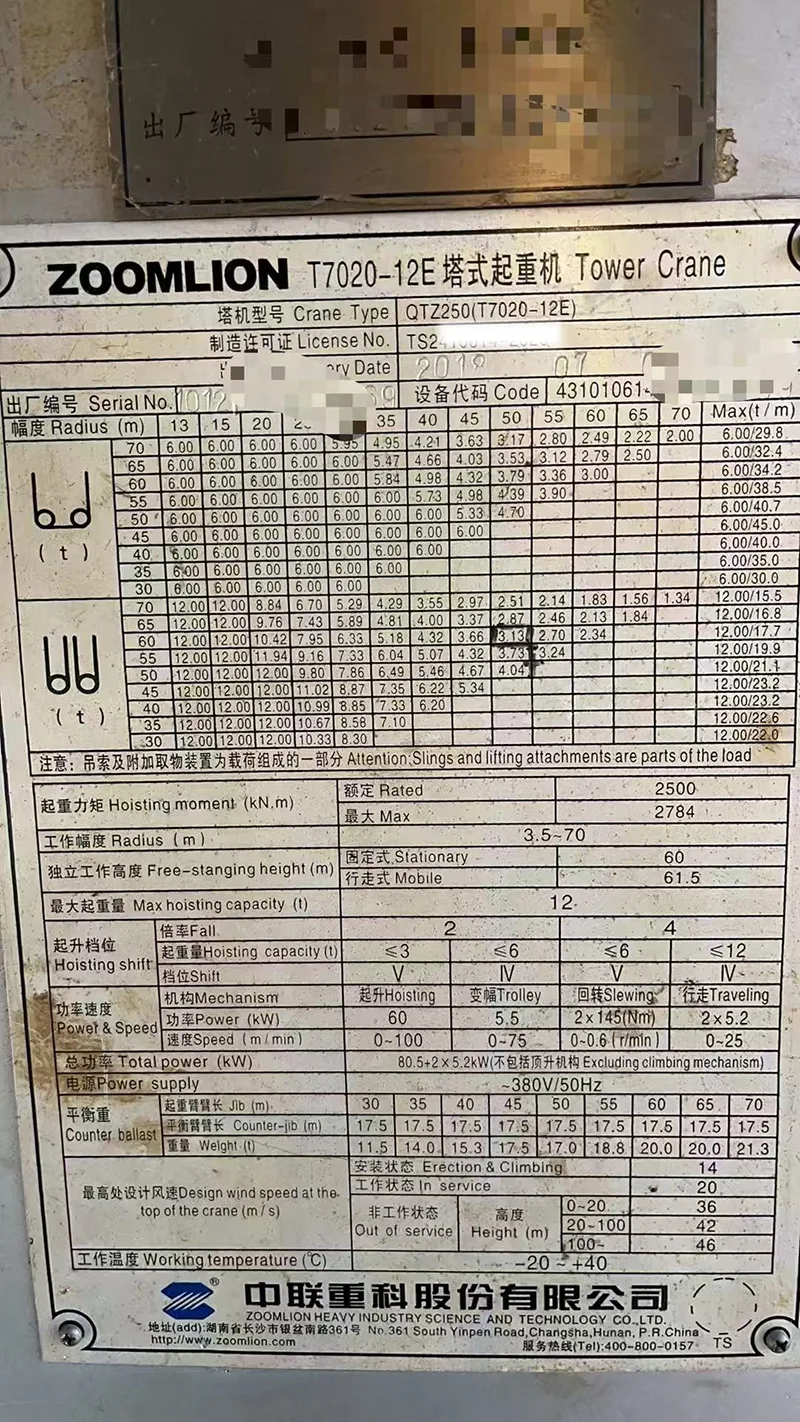 出厂编号
ZOOMLION T7020-12E 塔式起重机 Tower Crane
塔机型号 Crane Type QTZ250(T7020-12E)
制造许可证 License No. TS2
ry Date 2019 07
出厂编号 Serial No. 1012 设备代码 Code 43101061
幅度 Radius (m) 13 15 20 35 40 45 50 55 60 65 70 Max(t/m)
70 6.00 6.00 6.00 6.00 5.95 4.95 4.21 3.63 3.17 2.80 2.49 2.22 2.00 6.00/29.8
65 6.00 6.00 6.00 6.00 6.00 5.47 4.66 4.03 3.53 3.12 2.79 2.50 6.00/32.4
60 6.00 6.00 6.00 6.00 6.00 5.84 4.98 4.32 3.79 3.36 3.00 6.00/34.2
55 6.00 6.00 6.00 6.00 6.00 6.00 5.73 4.98 4.39 3.90 6.00/38.5
50 6.00 6.00 6.00 6.00 6.00 6.00 6.00 5.33 4.70 6.00/40.7
45 6.00 6.00 6.00 6.00 6.00 6.00 6.00 6.00 6.00/45.0
(t) 40 6.00 6.00 6.00 6.00 6.00 6.00 6.00 6.00/40.0
35 6.00 6.00 6.00 6.00 6.00 6.00 6.00/35.0
30 6.00 6.00 6.00 6.00 6.00 6.00/30.0
70 12.00 12.00 8.84 6.70 5.29 4.29 3.55 2.97 2.51 2.14 1.83 1.56 1.34 12.00/15.5
65 12.00 12.00 9.76 7.43 5.89 4.81 4.00 3.37 2.87 2.46 2.13 1.84 12.00/16.8
60 12.00 12.00 10.42 7.95 6.33 5.18 4.32 3.66 3.13 2.70 2.34 12.00/17.7
55 12.00 12.00 11.94 9.16 7.33 6.04 5.07 4.32 3.73 3.24 12.00/19.9
50 12.00 12.00 12.00 9.80 7.86 6.49 5.46 4.67 4.04 12.00/21.1
45 12.00 12.00 12.00 11.02 8.87 7.35 6.22 5.34 12.00/23.2
(t) 40 12.00 12.00 12.00 10.99 8.85 7.33 6.20 12.00/23.2
35 12.00 12.00 12.00 10.67 8.58 7.10 12.00/22.6
30 12.00 12.00 12.00 10.33 8.30 12.00/22.0
注意: 吊索及附加取物装置为载荷组成的一部分 Attention:Slings and lifting attachments are parts of the load
起重力矩 Hoisting moment (kN.m) 额定 Rated 2500
最大 Max 2784
工作幅度 Radius (m) 3.5~70
独立工作高度 Free-stanging height(m) 固定式 Stationary 60
行走式 Mobile 61.5
最大起重量 Max hoisting capacity (t) 12
起升档位 Hoisting shift 倍率Fall 2 4
起重量Hoisting capacity(t) ≤3 ≤6 ≤6 ≤12
档位Shift V IV V IV
功率速度 Power & Speed 机构Mechanism 起升Hoisting 变幅Trolley 回转Slewing 行走Traveling
功率Power (kW) 60 5.5 2×145(Nm) 2×5.2
速度Speed (m/min) 0~100 0~75 0~0.6(r/min) 0~25
总功率 Total power (kW) 80.5+2×5.2kW(不包括顶升机构 Excluding climbing mechanism)
电源Power supply ~380V/50Hz
平衡重 Counter ballast 起重臂臂长 Jib (m) 30 35 40 45 50 55 60 65 70
平衡臂臂长 Counter-jib (m) 17.5 17.5 17.5 17.5 17.5 17.5 17.5 17.5 17.5
重量 Weight (t) 11.5 14.0 15.3 17.5 17.0 18.8 20.0 20.0 21.3
最高处设计风速Design wind speed at the top of the crane (m/s) 安装状态 Erection & Climbing 14
工作状态 In service 20
非工作状态 Out of service 高度 Height (m) 0~20 36
20~100 42
100~ 46
工作温度 Working temperature (℃) -20 ~ +40
® 中联重科股份有限公司
ZOOMLION HEAVY INDUSTRY SCIENCE AND TECHNOLOGY CO.,LTD.
地址(add):湖南省长沙市银盆南路361号 No.361 South Yinpen Road,Changsha,Hunan, P.R.China
http://www.zoomlion.com 服务热线(Tel):400-800-0157 TS